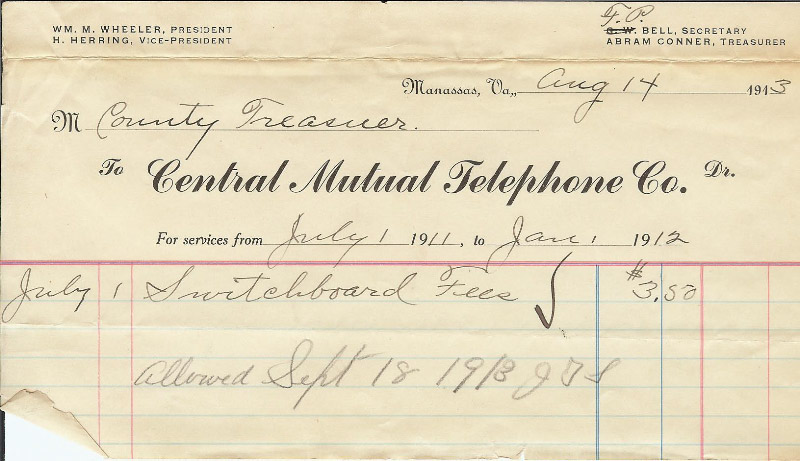 WM. M. WHEELER, PRESIDENT
H. HERRING, VICE-PRESIDENT
F. P.
G. W. BELL, SECRETARY
ABRAM CONNER, TREASURER
Manassas, Va., Aug 14 1913
M County Treasuer.
To Central Mutual Telephone Co. Dr.
For services from July 1 1911, to Jan. 1 1912
July 1 Switchboard Fees $3.50
Allowed Sept 18 1913 J T S